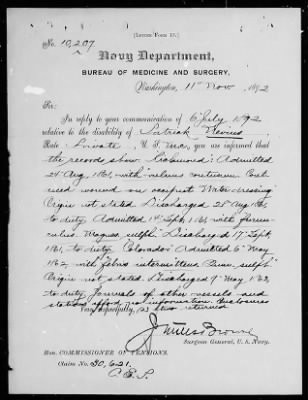 [Letter Form 15.]
No. 10,207
Navy Department,
BUREAU OF MEDICINE AND SURGERY,
Washington, 11" Nov, 1892
Sir:
In reply to your communication of 6 July 1892
relative to the disability of Patrick
Rate Private, U. S. you are informed that
the records show Admitted
24" Aug. 1861, with "vulnus contusum Cont
used wound on occiput Water dressing"
Origin not stated. Discharged 28" Aug 1861
to duty. Admitted 1st Sept. 1861 with
Magnes. sulph" Discharged 17" Sept.
1861, to duty. "Colorado" Admitted 6" May
1862, with "febris intermittens Quin. sulph"
Origin not stated. Discharged 9" May 1862,
to duty. Journals of other vessels and
stations afford no information. Enclosures
Very respectfully, (2) two returned
J Mills Browne
Surgeon General, U. S. Navy.
Hon. COMMISSIONER OF PENSIONS.
Claim No. 30,621.